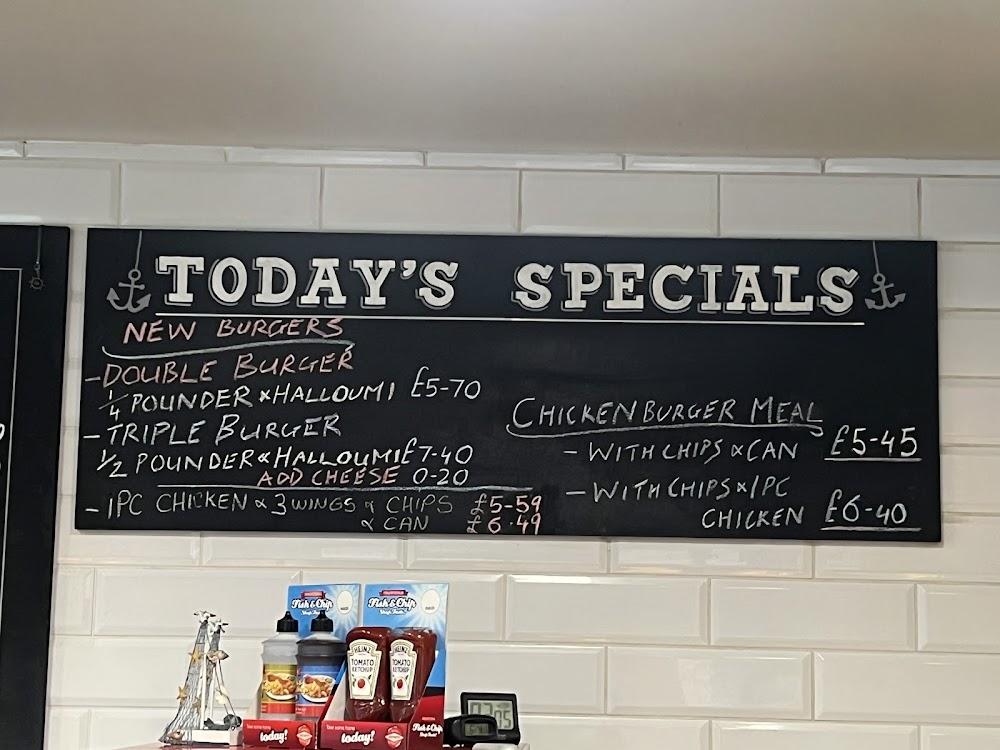 TODAY'S SPECIALS
NEW BURGERS
-DOUBLE BURGER
1/4 POUNDER & HALLOUMI £5-70
-TRIPLE BURGER
1/2 POUNDER & HALLOUMI £7-40
ADD CHEESE 0-20
-1PC CHICKEN & 3 WINGS & CHIPS £5-59
& CAN £6.49
CHICKEN BURGER MEAL
-WITH CHIPS & CAN £5-45
-WITH CHIPS & 1PC
CHICKEN £6-40
Fish & Chip
Fish & Chip
HEINZ
TOMATO
KETCHUP
HEINZ
TOMATO
KETCHUP
Take some home
today!
Take some home
today!
Fish & Chip